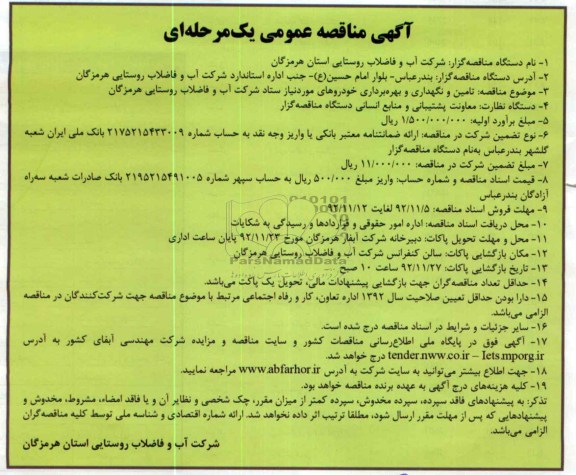 آگهی مناقصه عمومی یک‌مرحله‌ای
۱- نام دستگاه مناقصه‌گزار: شرکت آب و فاضلاب روستایی استان هرمزگان
۲- آدرس دستگاه مناقصه‌گزار: بندرعباس- بلوار امام حسین(ع)- جنب اداره استاندارد شرکت آب و فاضلاب روستایی هرمزگان
۳- موضوع مناقصه: تامین و نگهداری و بهره‌برداری خودروهای موردنیاز ستاد شرکت آب و فاضلاب روستایی هرمزگان
۴- دستگاه نظارت: معاونت پشتیبانی و منابع انسانی دستگاه مناقصه‌گزار
۵- مبلغ برآورد اولیه: ۱/۵۰۰/۰۰۰/۰۰۰ ریال
۶- نوع تضمین شرکت در مناقصه: ارائه ضمانتنامه معتبر بانکی یا واریز وجه نقد به حساب شماره ۲۱۷۵۲۱۵۴۳۳۰۰۹ بانک ملی ایران شعبه
گلشهر بندرعباس به‌نام دستگاه مناقصه‌گزار
۷- مبلغ تضمین شرکت در مناقصه: ۱۱/۰۰۰/۰۰۰ ریال
۸- قیمت اسناد مناقصه و شماره حساب: واریز مبلغ ۵۰۰/۰۰۰ ریال به حساب سپهر شماره ۲۱۹۵۲۱۵۴۹۱۰۰۵ بانک صادرات شعبه سه‌راه
آزادگان بندرعباس
۹- مهلت فروش اسناد مناقصه: ۹۲/۱۱/۵ لغایت ۹۲/۱۱/۱۲
۱۰- محل دریافت اسناد مناقصه: اداره امور حقوقی و قراردادها و رسیدگی به شکایات
۱۱- محل و مهلت تحویل پاکات: دبیرخانه شرکت آبفار هرمزگان مورخ ۹۲/۱۱/۲۳ پایان ساعت اداری
۱۲- مکان بازگشایی پاکات: سالن کنفرانس شرکت آب و فاضلاب روستایی هرمزگان
۱۳- تاریخ بازگشایی پاکات: ۹۲/۱۱/۲۷ ساعت ۱۰ صبح
۱۴- حداقل تعداد مناقصه‌گران جهت بازگشایی پیشنهادات مالی، تحویل یک پاکت می‌باشد.
۱۵- دارا بودن حداقل تعیین صلاحیت سال ۱۳۹۲ اداره تعاون، کار و رفاه اجتماعی مرتبط با موضوع مناقصه جهت شرکت‌کنندگان در مناقصه
الزامی می‌باشد.
۱۶- سایر جزئیات و شرایط در اسناد مناقصه درج شده است.
۱۷- آگهی فوق در پایگاه ملی اطلاع‌رسانی مناقصات کشور و سایت مناقصه و مزایده شرکت مهندسی آبفای کشور به آدرس
tender.nww.co.ir – Iets.mporg.ir درج خواهد شد.
۱۸- جهت اطلاع بیشتر می‌توانید به سایت شرکت به آدرس www.abfarhor.ir مراجعه نمایید.
۱۹- کلیه هزینه‌های درج آگهی به عهده برنده مناقصه خواهد بود.
تذکر: به پیشنهادهای فاقد سپرده، سپرده مخدوش، سپرده کمتر از میزان مقرر، چک شخصی و نظایر آن و یا فاقد امضاء، مشروط، مخدوش و
پیشنهادهایی که پس از مهلت مقرر ارسال شود، مطلقا ترتیب اثر داده نخواهد شد. ارائه شماره اقتصادی و شناسه ملی توسط کلیه مناقصه‌گران
الزامی می‌باشد.
شرکت آب و فاضلاب روستایی استان هرمزگان
ParsNamadData